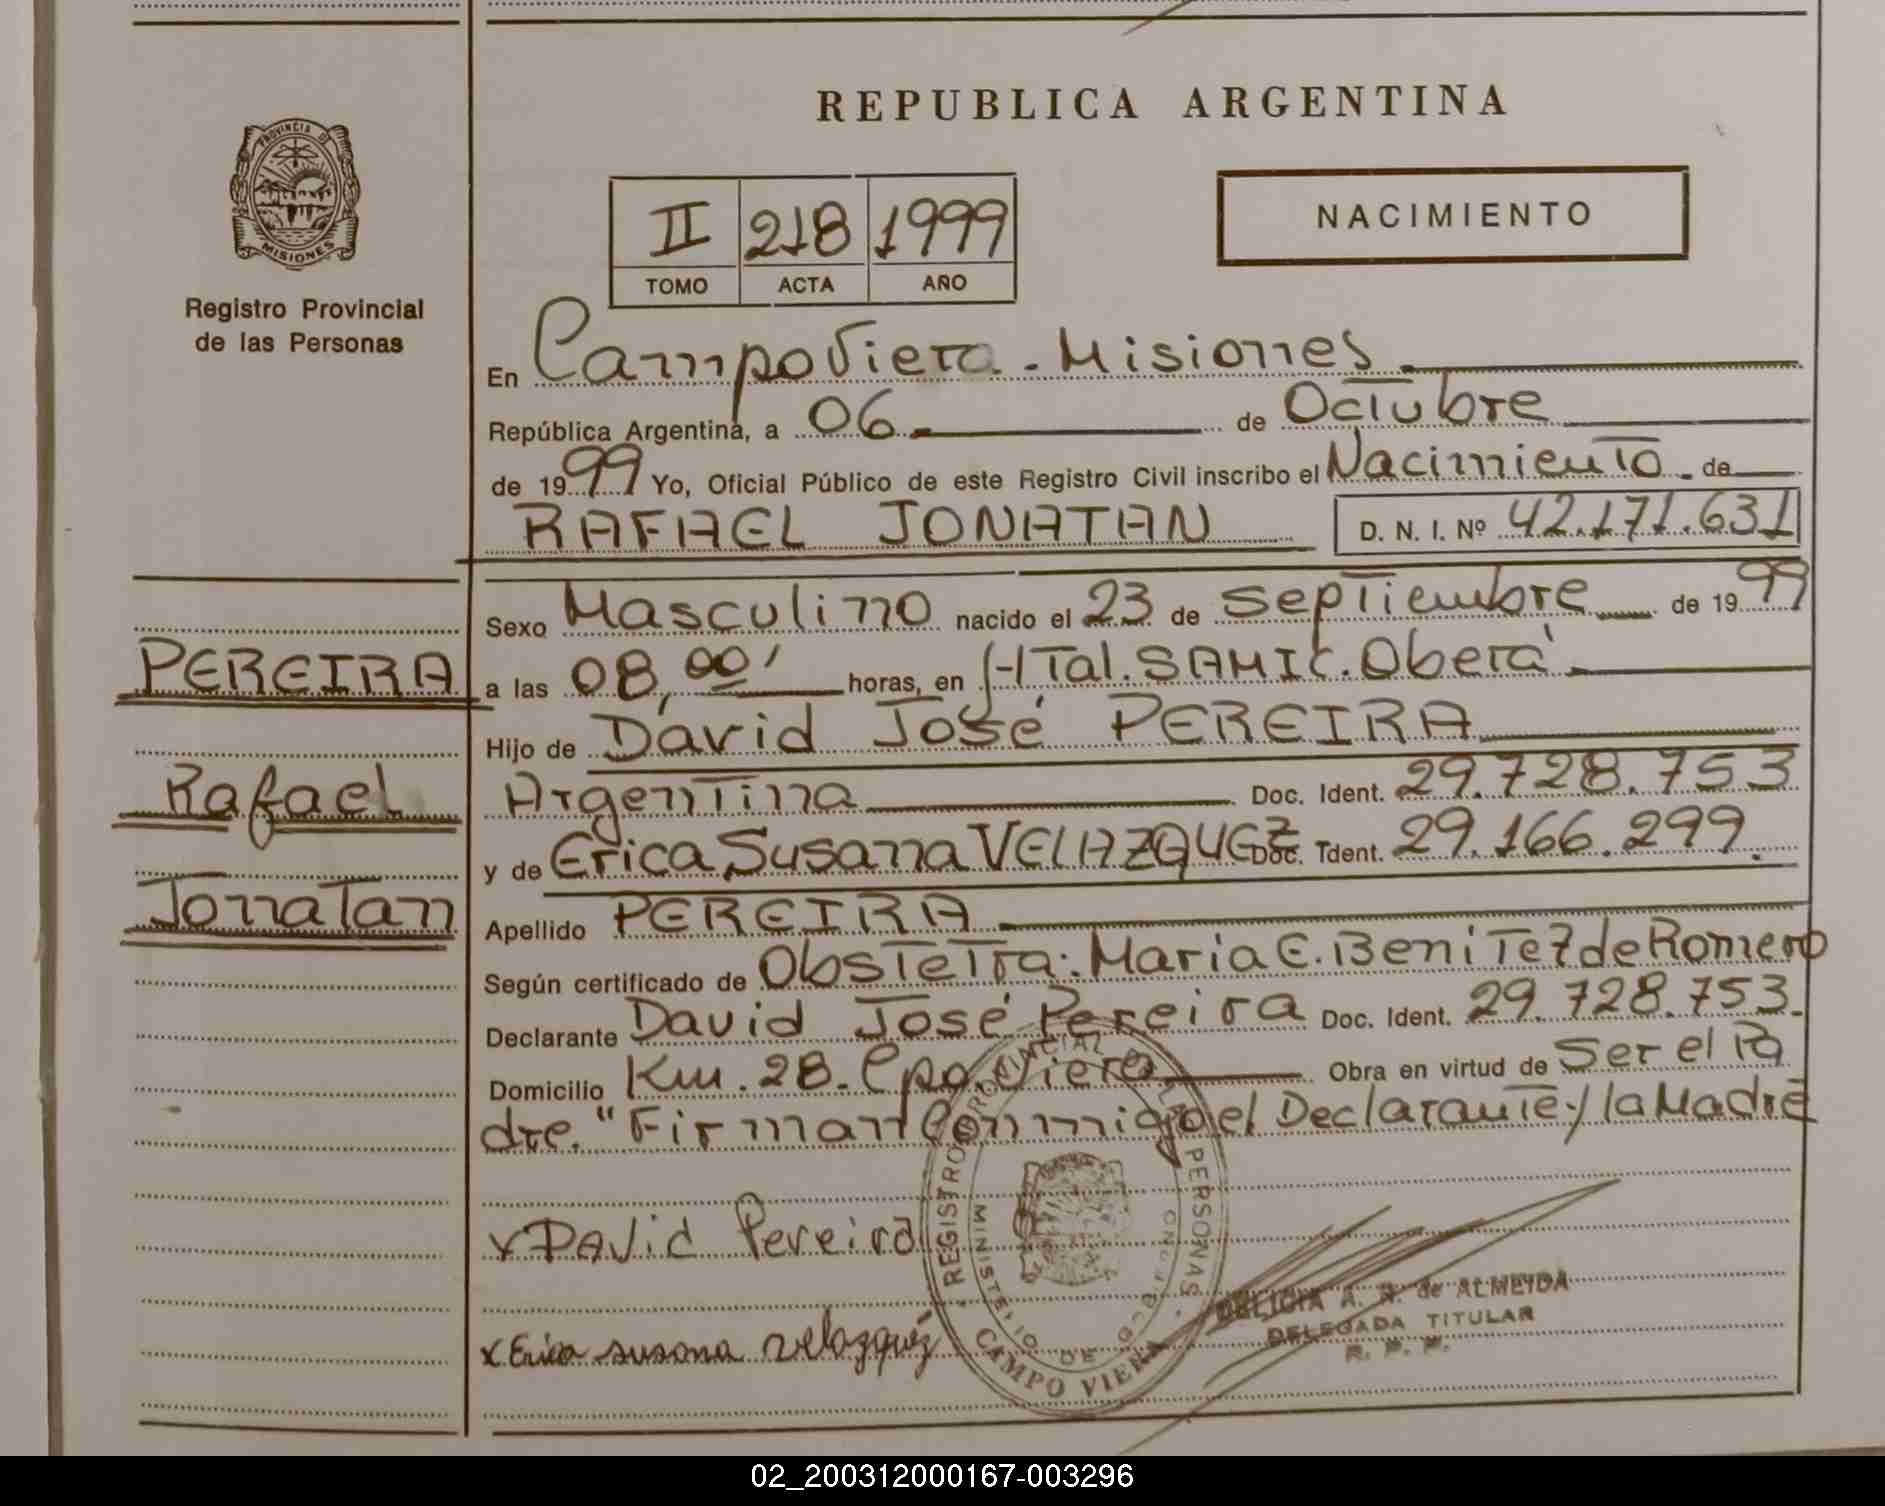 REPUBLICA ARGENTINA
PROVINCIA DE
MISIONES
Registro Provincial
de las Personas
II 218 1999
TOMO ACTA AÑO
NACIMIENTO
En Campo Viera - Misiones.
República Argentina, a 06 de Octubre
de 1999 Yo, Oficial Público de este Registro Civil inscribo el Nacimiento de
RAFAEL JONATAN D. N. I. Nº 42.171.631
Sexo Masculino nacido el 23 de septiembre de 1999
PEREIRA
a las 08,00' horas, en Htal. SAMIC. Oberá
Hijo de David José PEREIRA
Rafael
Argentina Doc. Ident. 29.728.753
y de Erica Susana VELAZQUEZ Doc. Ident. 29.166.299.
Jonatan
Apellido PEREIRA
Según certificado de Obstetra: Maria E. Benitez de Romero
Declarante David José Pereira Doc. Ident. 29.728.753.
Domicilio Km. 28. Cpo. Viera Obra en virtud de Ser el Pa
dre. "Firman Conmigo el Declarante y la Madre
x David Pereira
x Erica susana velazquez
REGISTRO PROVINCIAL DE LAS PERSONAS
MINISTERIO DE
CAMPO VIERA
DELICIA A. de ALMEIDA
DELEGADA TITULAR
R. P. P.
02_200312000167-003296